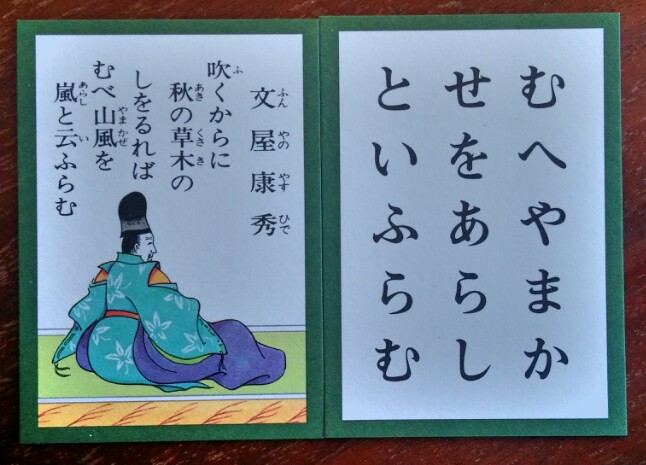 文屋康秀
吹くからに
秋の草木の
しをるれば
むべ山風を
嵐と云ふらむ
むへやまか
せをあらし
といふらむ